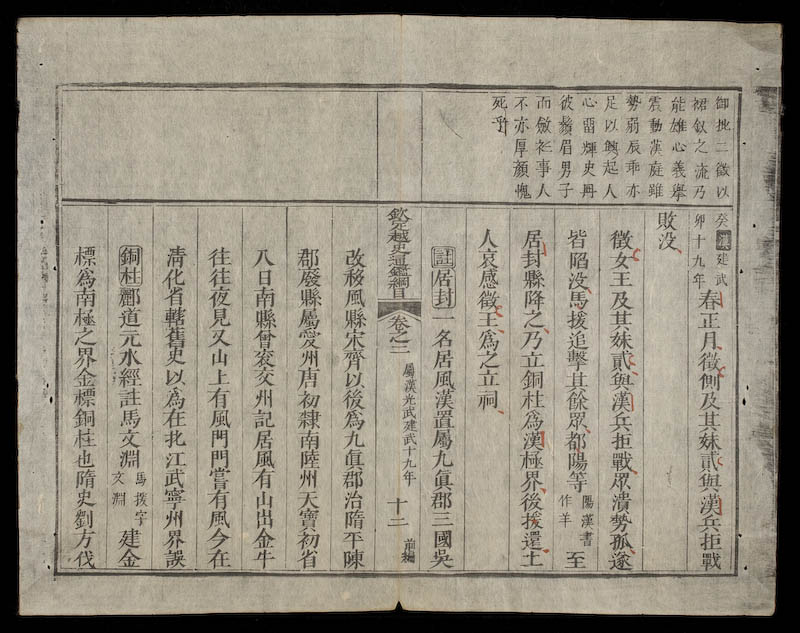 御批二徵以
裙釵之流乃
能雄心義舉
震動漢庭雖
勢弱辰乖亦
足以興起人
心畱輝史冊
彼鬚眉男子
而斂衽事人
不亦厚顏愧
死乎
癸卯漢建武十九年春正月徵側及其妹貳與漢兵拒戰
敗没
徵女王及其妹貳與漢兵拒戰眾潰勢孤遂
皆陷没馬援追擊其餘眾都陽等陽漢書作羊至
居封縣降之乃立銅柱爲漢極界後援還土
人哀感徵王爲之立祠
註居封一名居風漢置屬九眞郡三國吳
欽定越史通鑑綱目卷之二 屬漢光武建武十九年 十二 前編
改移風縣宋齊以後爲九眞郡治隋平陳
郡廢縣屬愛州唐初隸南陸州天寶初省
入日南縣曾袞交州記居風有山出金牛
往往夜見又山上有風門門嘗有風今在
淸化省轄舊史以爲在北江武寧州界誤
銅柱酈道元水經註馬文淵馬援字文淵建金
標爲南極之界金標銅柱也隋史劉方伐